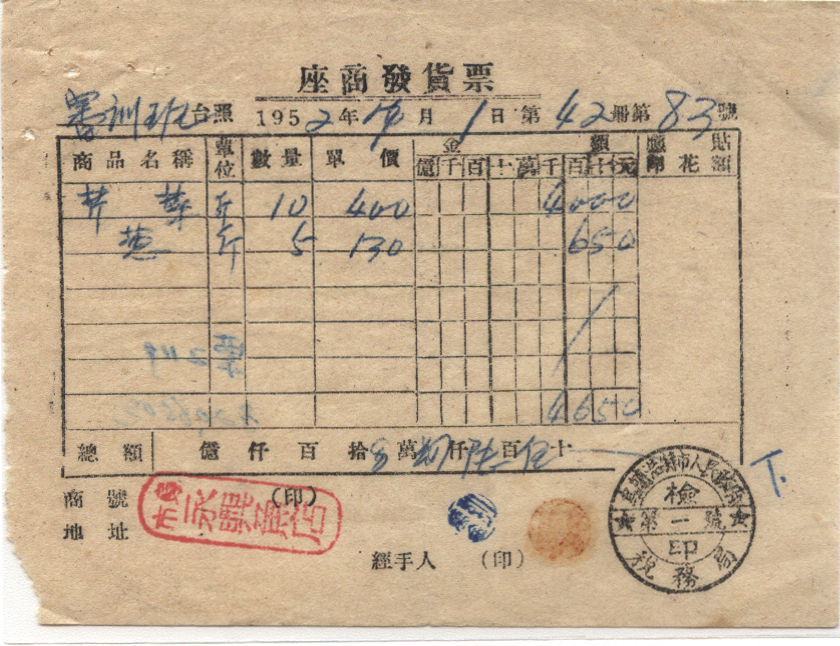 座商發貨票
台照 1952年 月1日第42冊第83號
商品名稱 單位 數量 單價 金額 應貼印花額
億千百十萬千百十元
芹菜 斤 10 400 4000
葱 斤 5 130 650
4650
總額 億仟百拾萬仟陆百伍十
商號 (印)
地址
經手人 (印)
市人民政府
檢
★第一號★
印
稅務局